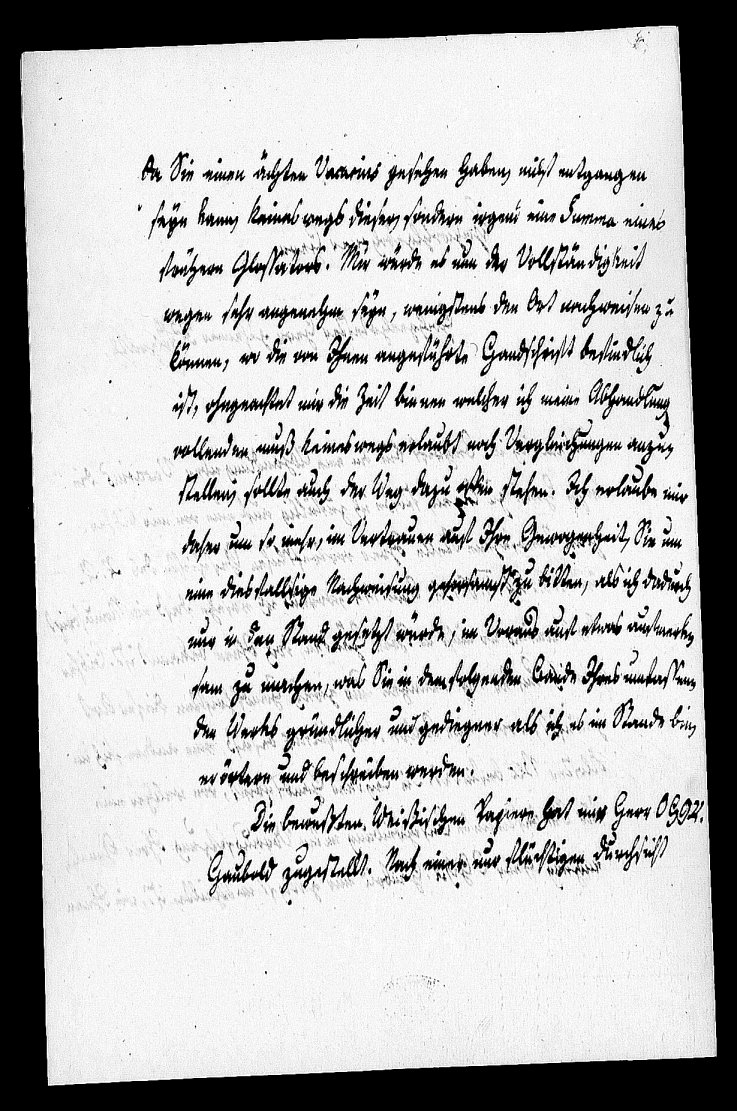 da Sie einen ächten Vacarius gesehen haben, nicht entgangen
seyn kann, keineswegs dieser, sondern irgend eine Summa eines
frühern Glossators. Mir würde es nun der Vollständigkeit
wegen sehr angenehm seyn, wenigstens den Ort nachweisen zu
können, wo die von Ihnen angeführte Handschrift befindlich
ist, ohngeachtet mir die Zeit binnen welcher ich meine Abhandlung
vollenden muß keineswegs erlaubt noch Vergleichungen anzu
stellen, sollte auch der Weg dazu offen stehen. Ich erlaube mir
daher um so mehr, im Vertrauen auf Ihre Gewogenheit, Sie um
eine diesfallsige Nachweisung gehorsamst zu bitten, als ich dadurch
nur in den Stand gesetzt würde, im Voraus auf etwas aufmerk
sam zu machen, was Sie in dem folgenden Bande Ihres umfassen
den Werks gründlicher und gediegner als ich es im Stande bin,
erörtern und beschreiben werden.
Die bewußten Weißischen Papiere hat mir Herr OHGR.
Haubold zugestellt. Nach einer nur flüchtigen Durchsicht